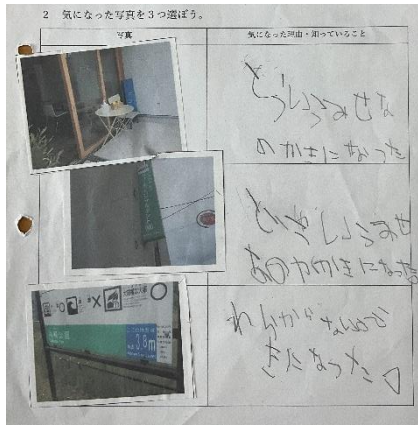 2 気になった写真を3つ選ぼう。
写真
気になった理由・知っていること
どういうみせな
のかきになった
どういうみせ
なのかきになった
わらからないので
きになった
3.8m